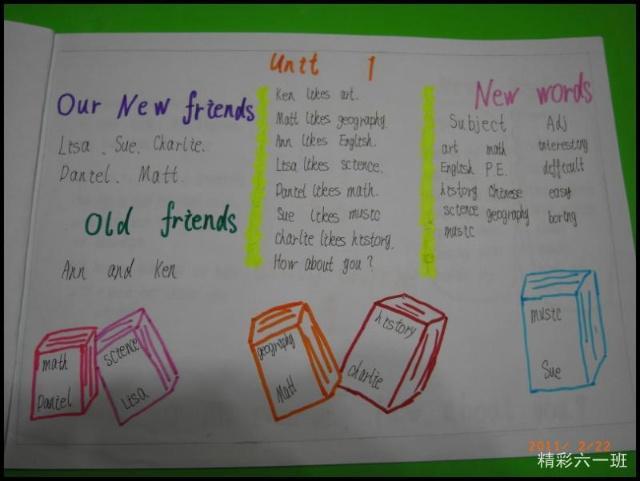 Unit 1
Our New friends
Lisa . Sue. Charlie.
Daniel. Matt.
Old friends
Ann and Ken
Ken likes art.
Matt likes geography.
Ann likes English.
Lisa likes science.
Daniel likes math.
Sue likes music
charlie likes history.
How about you ?
New words
Subject Adj
art math interesting
English P.E. difficult
history Chinese easy
science geography boring
music
math
Daniel
science
Lisa
geography
Matt
history
charlie
music
Sue
2011/ 2/22
精彩六一班